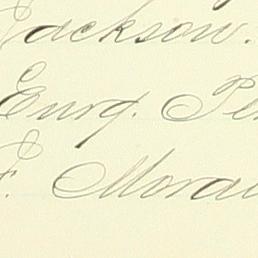 Jackson.
Eurq. Pe
F. Mora